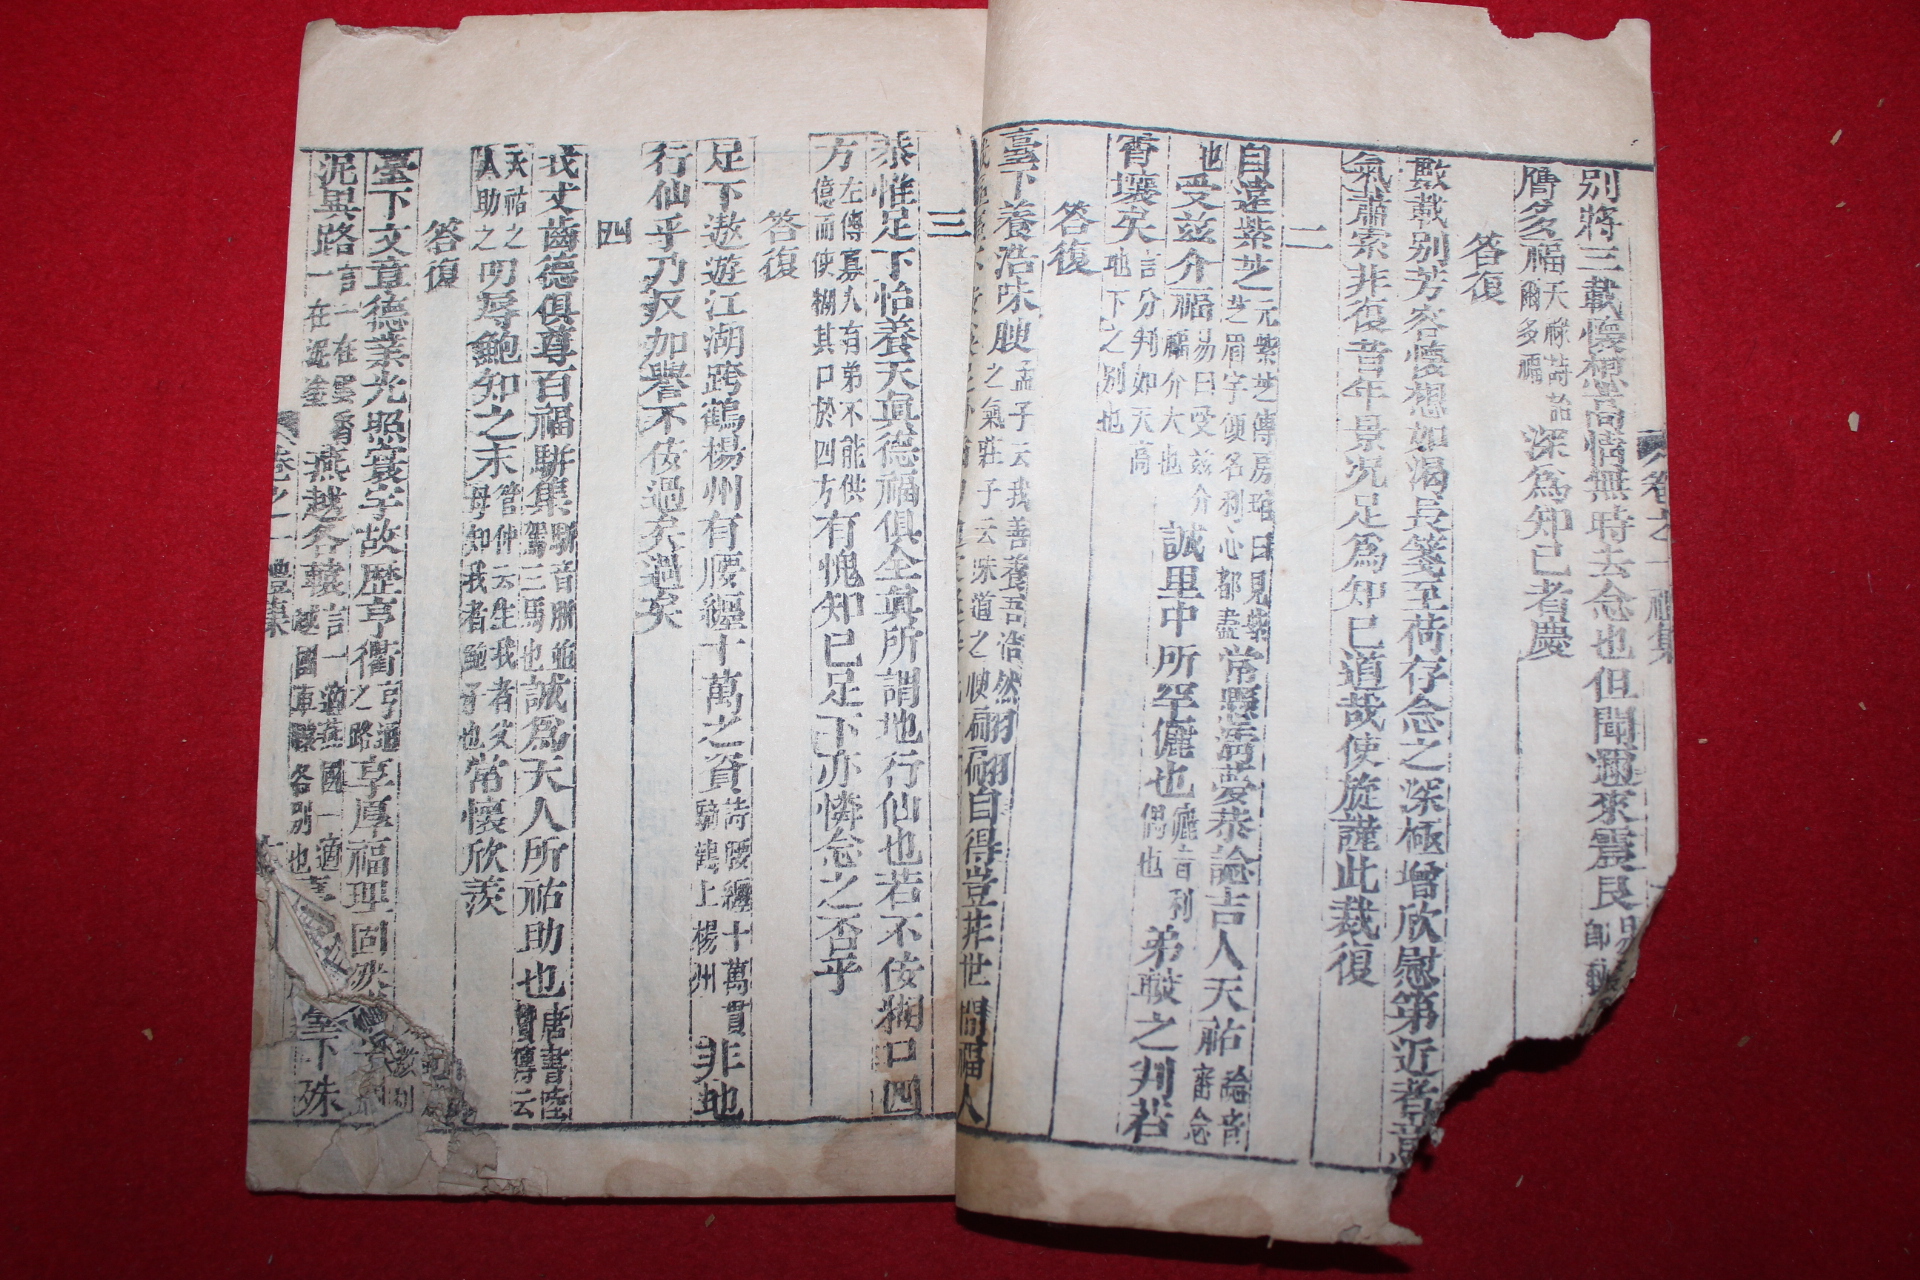 別將三載懷想尚惰無時去念也但聞邇來震艮
膺多福天祿詩詒爾多福深爲知己者慶
答復
數載别芳容懷想如渴長箋至荷存念之深極增欣慰第近者
氣蕭索非復昔年景况足爲知已道哉使旋謹此裁復
二
自違紫芝元紫芝傳房琯曰見紫芝眉宇便名利心都盡常懸渴愛恭諗吉人天祐諗音審念
也受玆介福易曰受玆介福介大也誠里中所罕儷也儷音利偶也弟較之判若
霄壤矣言分判如天高地下之别也
答復
臺下養浩味腴孟子云我善養吾浩然之氣莊子云味道之腴翩翩自得豈非世間福人
三
恭惟足下怡養天眞德福俱全眞所謂地行仙也若不佞糊口四
方左傳寡人有弟不能供億而使糊其口於四方有愧知已足下亦憐念之否乎
答復
足下遨遊江湖跨鶴楊州有腰纏十萬之資詩腰纏十萬貫騎鶴上楊州非地
行仙乎乃叔加譽不佞過矣過矣
四
我丈齒德俱尊百福駢集駢音胼並駕二馬也誠爲天人所祐助也唐書陸贄傳云
天祐之人助之叨辱鮑知之末管仲云生我者父母知我者鮑子也常懷欣羡
答復
臺下文章德業光照寰宇故歴亨衢亨通之路享厚福理固
泥異路言一在雲霄一在泥塗燕越各轅言一適燕國一適越國車轅各别也臺下殊
卷之一禮集